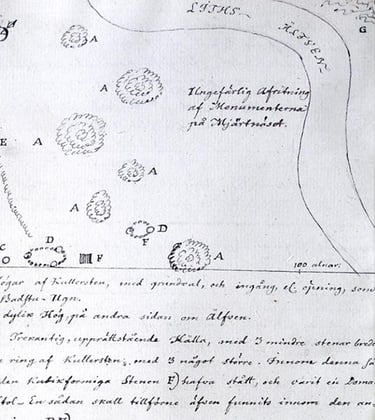 LITHS-
ÄLFVEN.
G
A
A
Ungefärlig Afritning
af Monumenterna
på Mjärtnäset.
E
A
A
A
D
F
D
C
F
A
100 alnar.
högar af Kullersten, med grundval, och ingång, el. öpning, som
Badstu-Ugn.
dylik Hög, på andra sidan om Älfven.
Trekantig, upprättstående Hälla, med 3 mindre stenar bred
ring af Kullersten, med 3 något större. Innom denna
den Kubikformiga Stenen F) hafva stått, och varit en Doma
stol. En sådan skall tillförne äfven funnits innom den an-